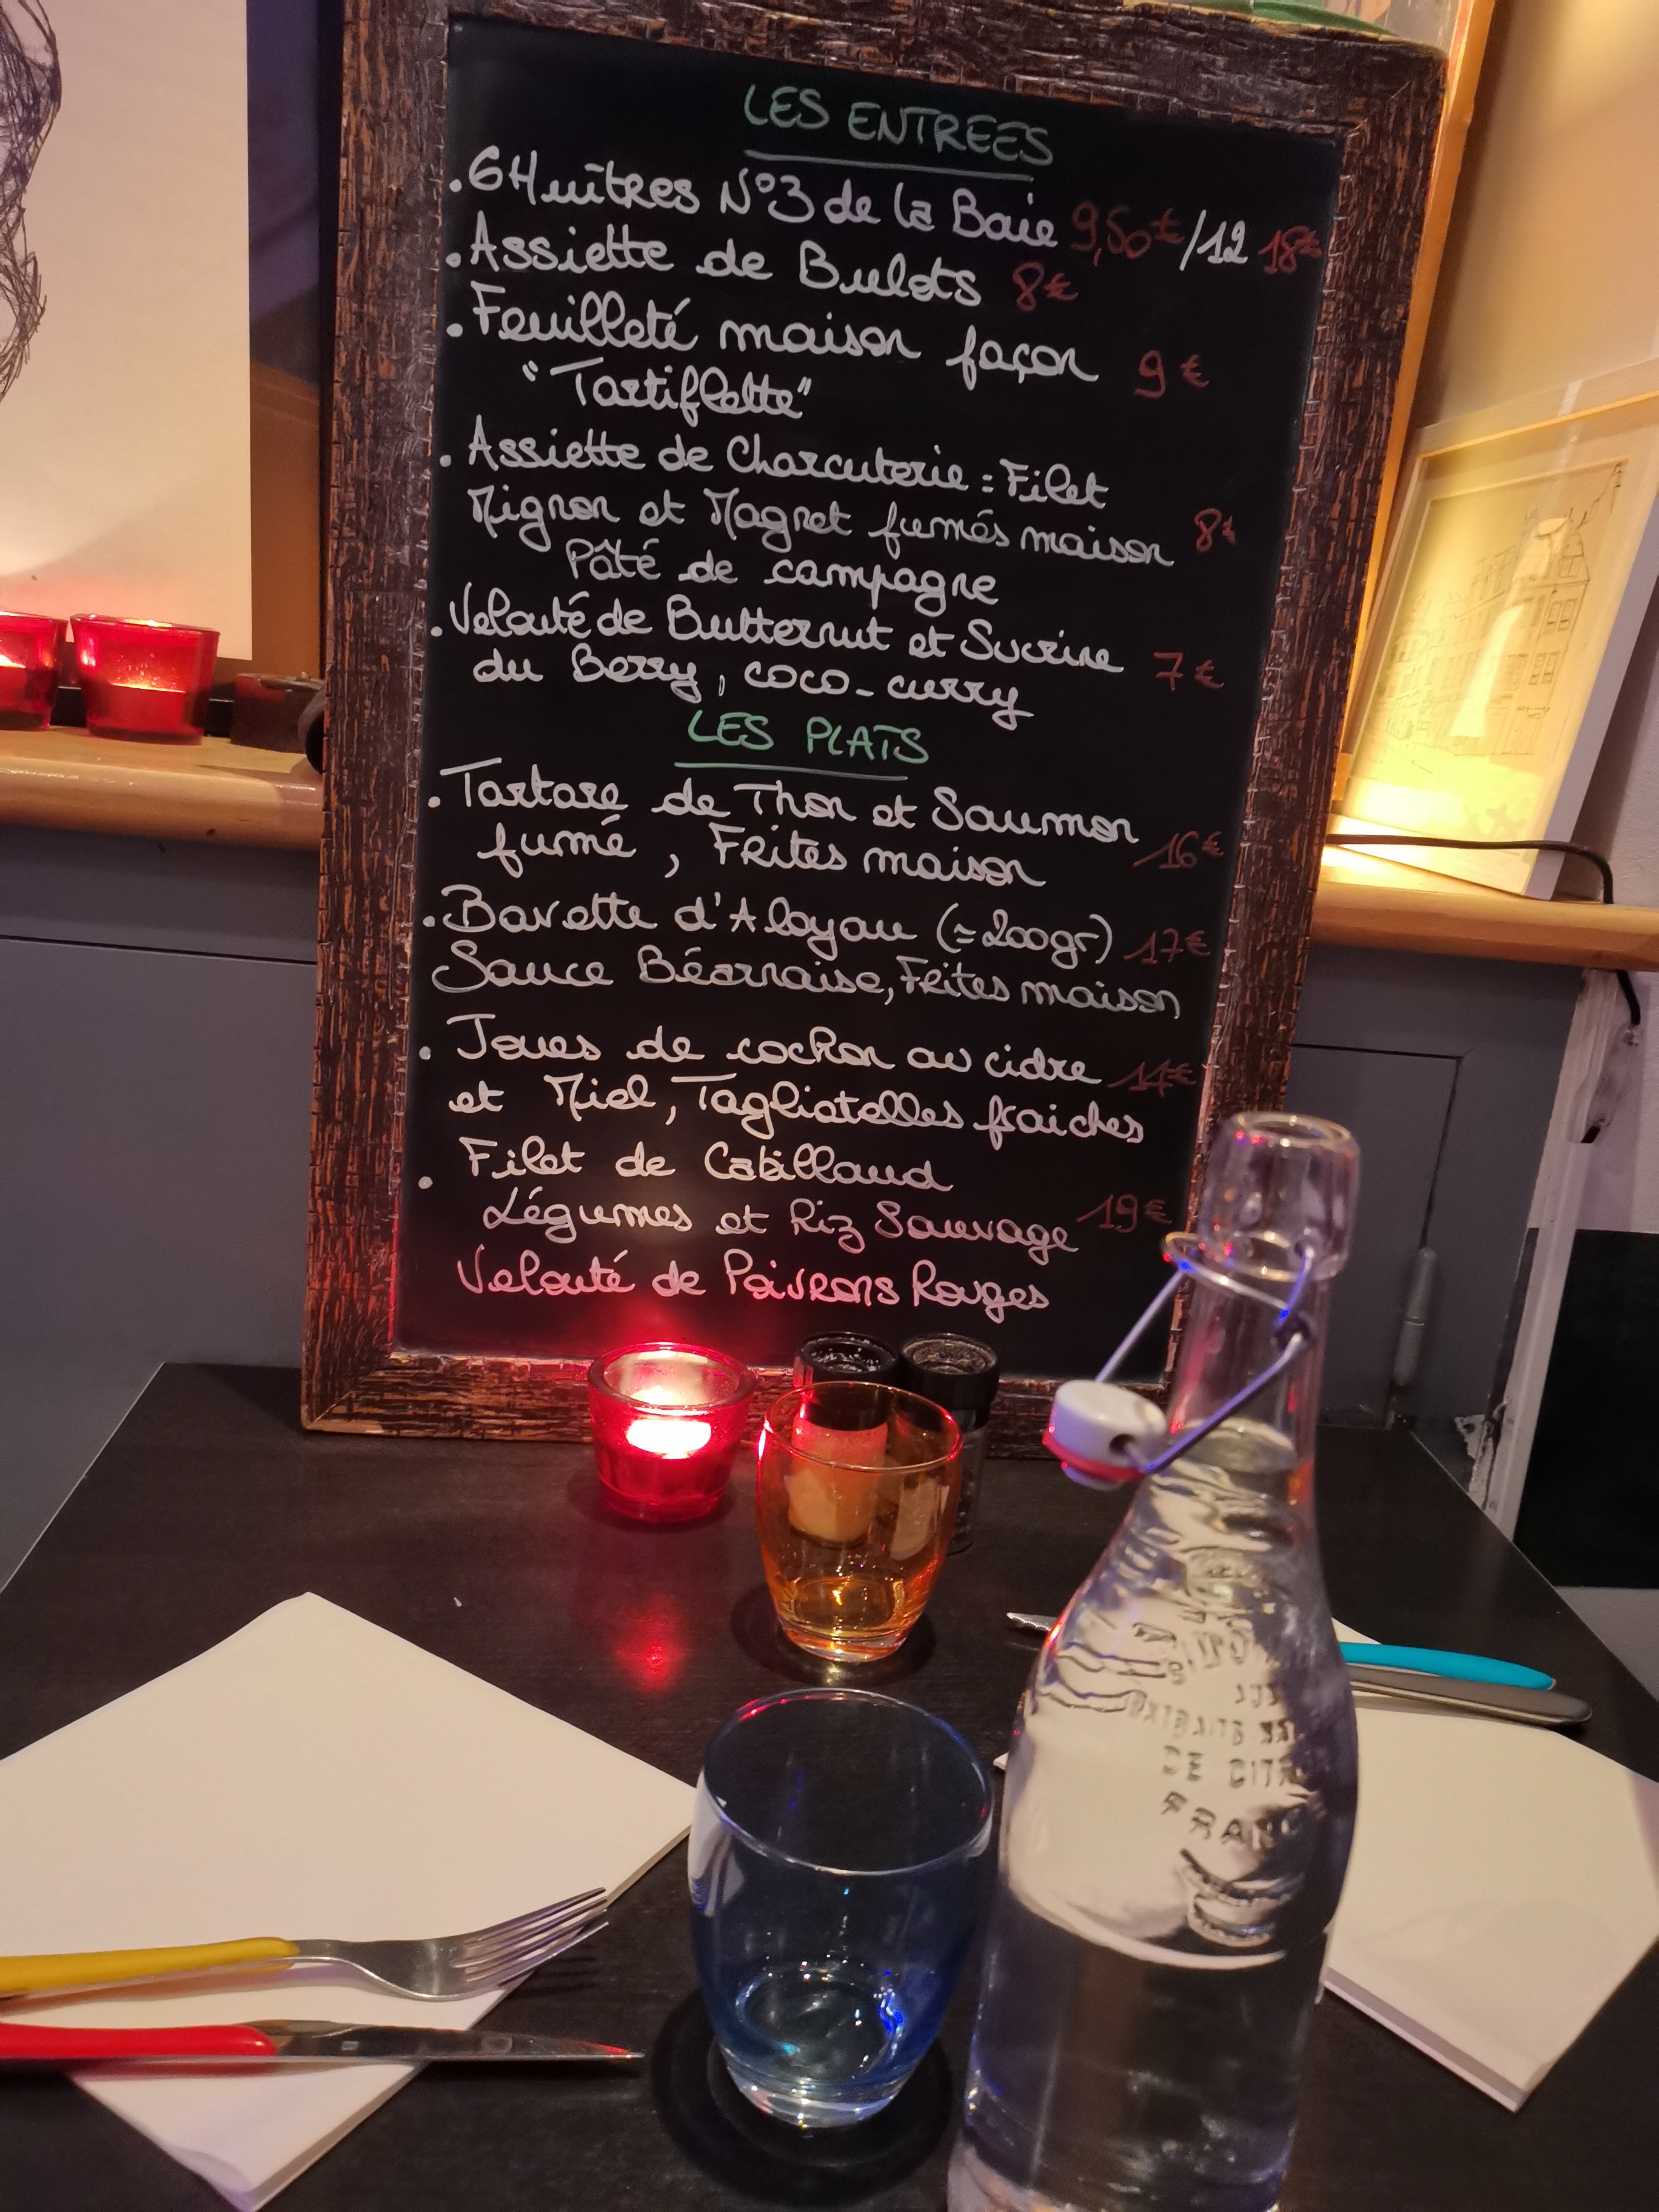 LES ENTREES
. 6 Huîtres N°3 de la Baie 9,50€ / 12 18€
. Assiette de Bulots 8€
. Feuilleté maison façon 9€
"Tartiflette"
. Assiette de Charcuterie : Filet
Mignon et Magret fumés maison 8€
Pâté de campagne
. Velouté de Butternut et Sucrine 7€
du Berry, coco-curry
LES PLATS
. Tartare de Thon et Saumon
fumé, Frites maison 16€
. Bavette d'Aloyau (≈200gr) 17€
Sauce Béarnaise, Frites maison
. Joues de cochon au cidre 14€
et Miel, Tagliatelles fraiches
. Filet de Cabillaud
Légumes et Riz Sauvage 19€
Velouté de Poivrons Rouges
DE